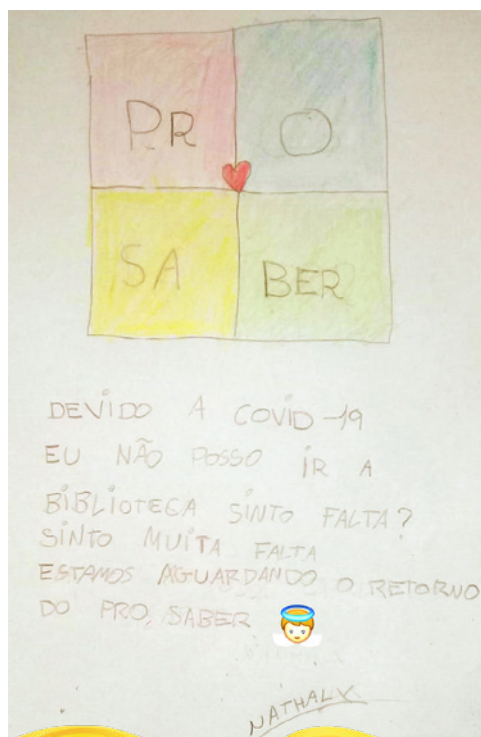 PR O
SA BER
DEVIDO A COVID-19
EU NÃO POSSO IR A
BIBLIOTECA SINTO FALTA?
SINTO MUITA FALTA
ESTAMOS AGUARDANDO O RETORNO
DO PRO, SABER
NATHALY